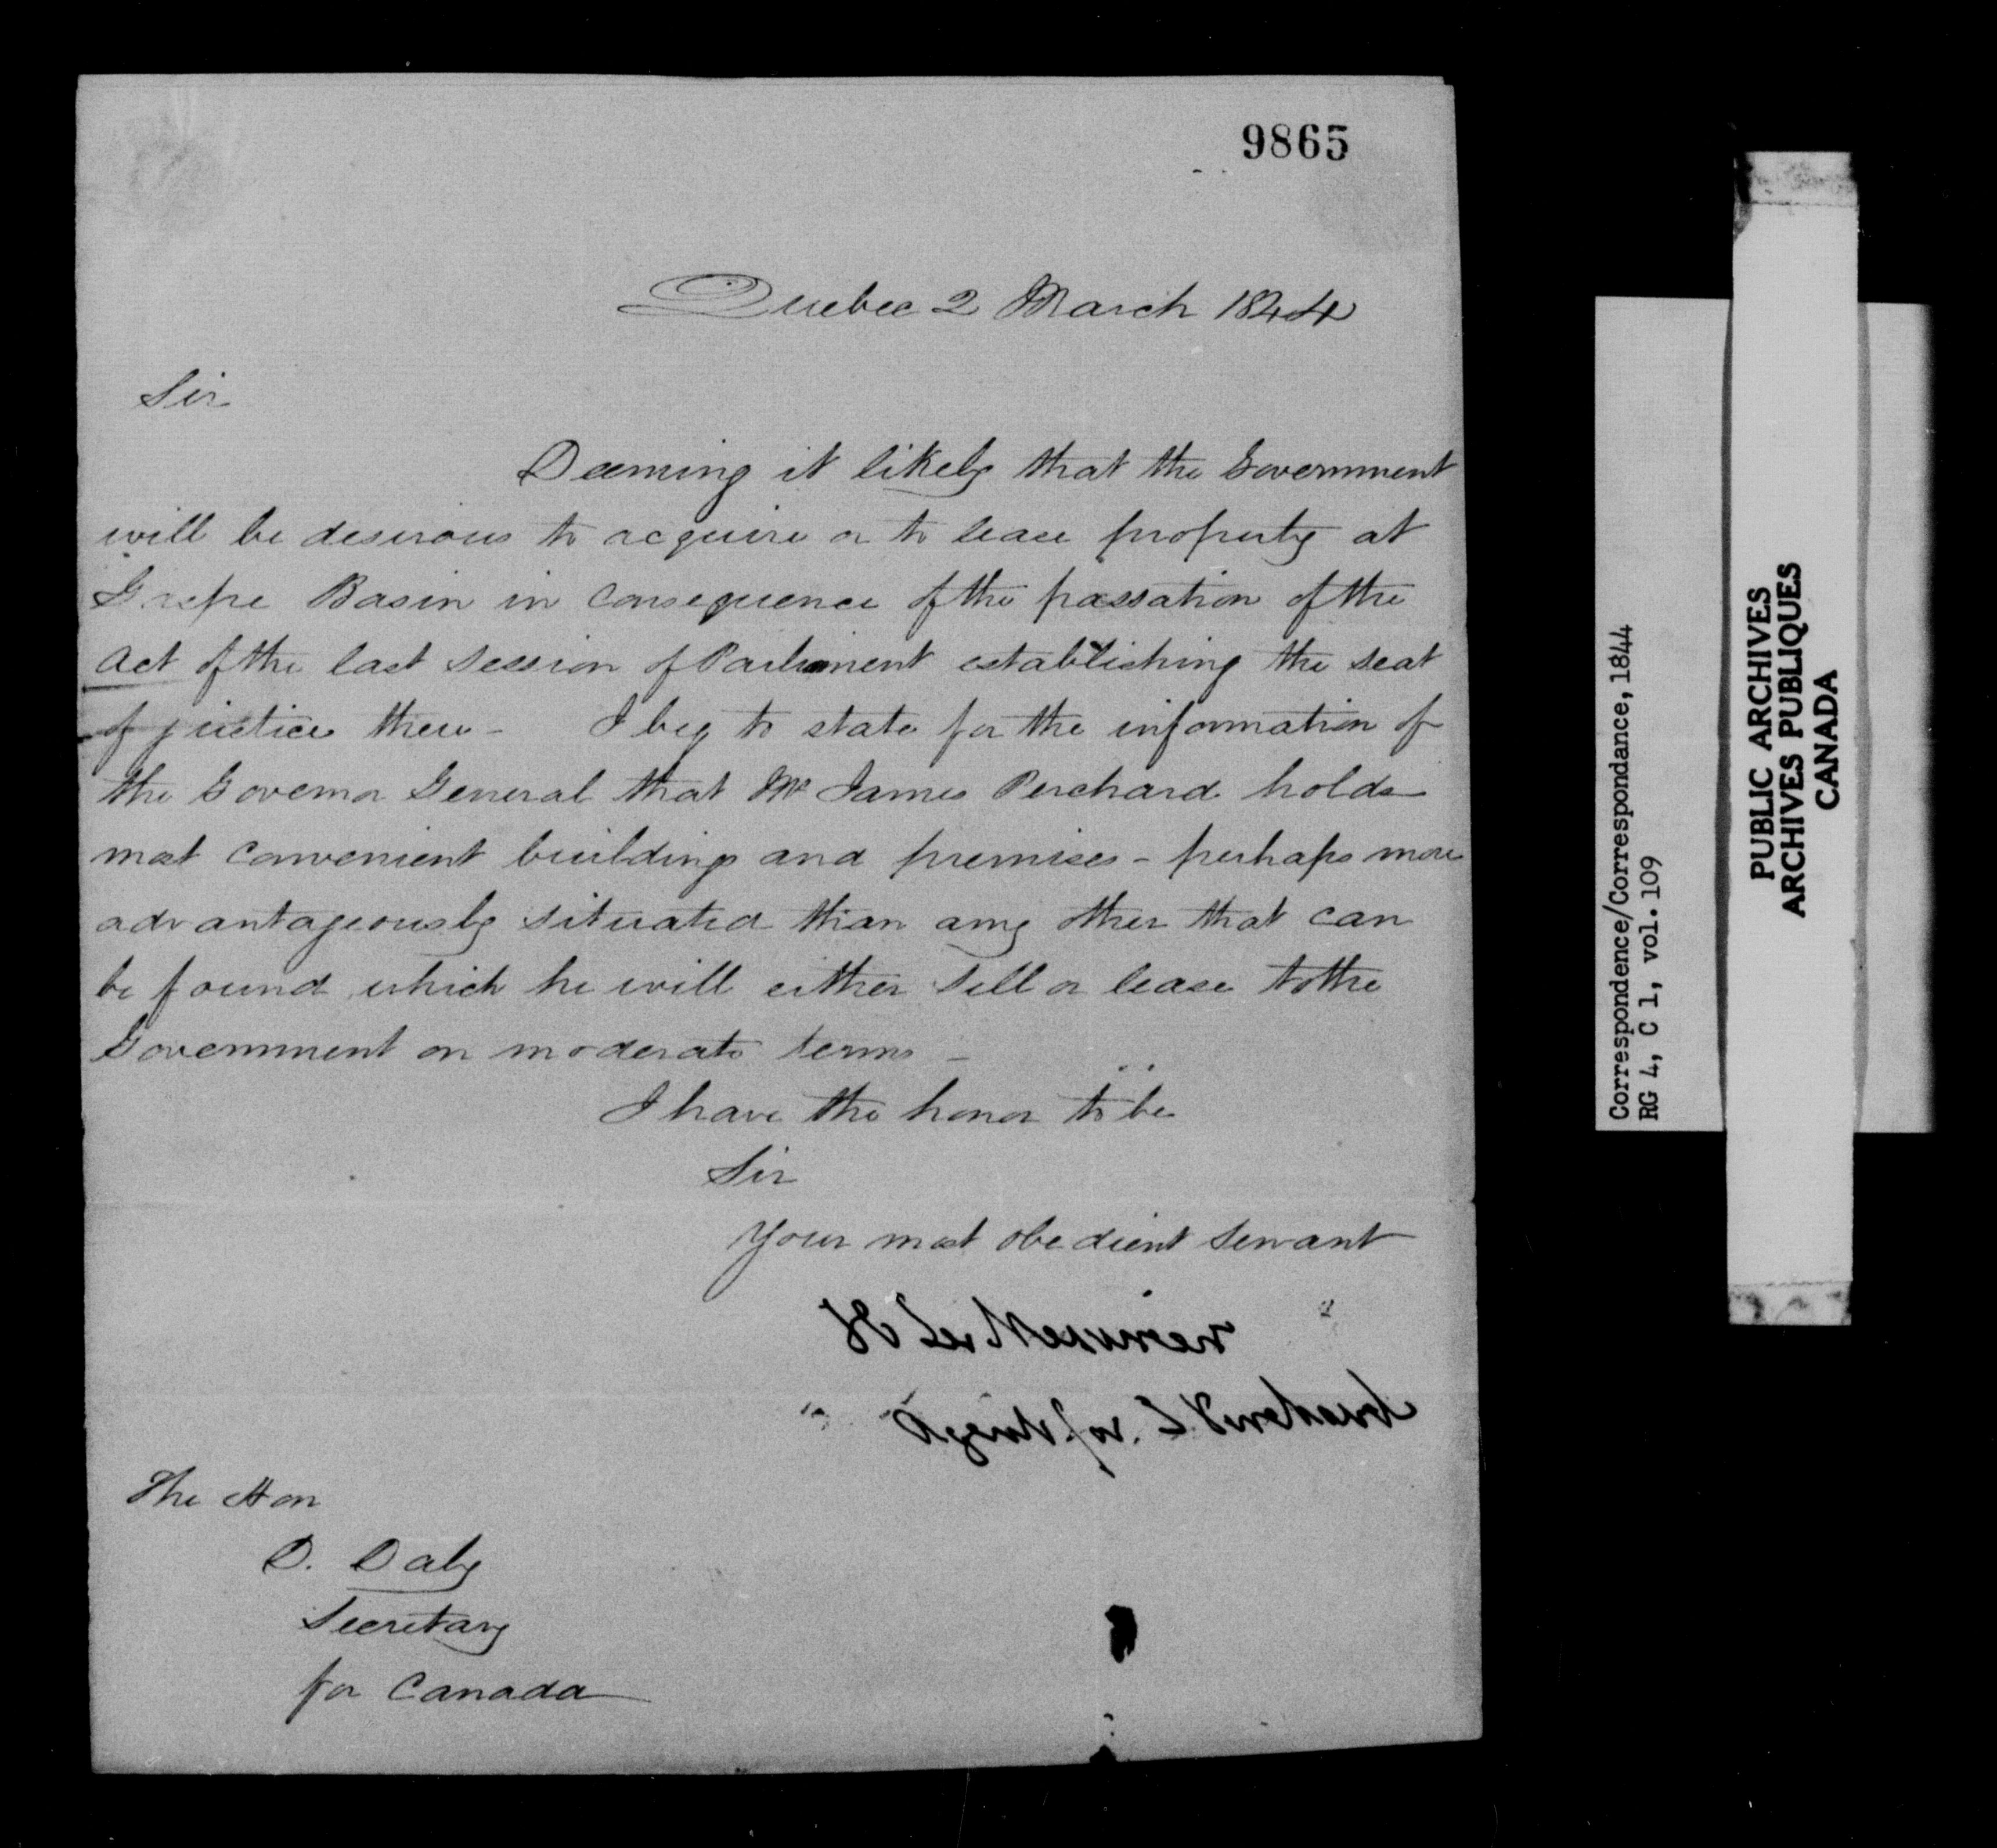 9865
Quebec 2 March 1844
Sir
Deeming it likely that the Government
will be desirous to acquire or to lease property at
Gaspe Basin in consequence of the passation of the
Act of the last session of Parliament establishing the seat
of justice there - I beg to state for the information of
the Governor General that Mr James Perchard holds
most convenient buildings and premises - perhaps more
advantageously situated than any other that can
be found which he will either sell or lease to the
Government on moderate terms -
I have the honor to be
Sir
Your most obedient servant
H LeMesurier
Agent for
The Hon
D. Daly
Secretary
for Canada
Correspondence/Correspondance, 1844
RG 4, C 1, vol. 109
PUBLIC ARCHIVES
ARCHIVES PUBLIQUES
CANADA